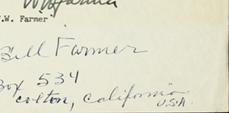 W Farmer
.W. Farmer
Bill Farmer
Box 534
Colton, California
U.S.A.